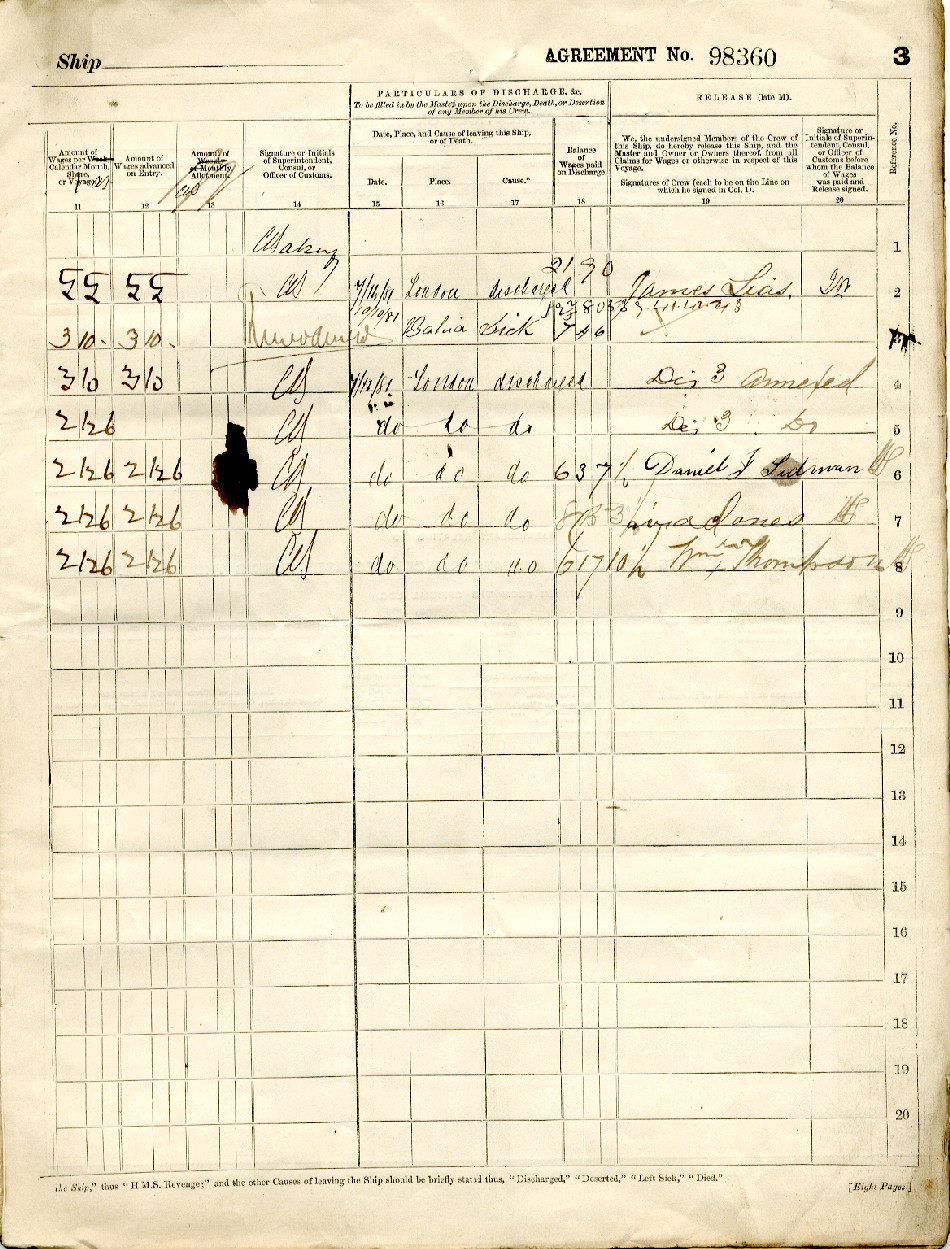 Ship
AGREEMENT No. 98360
3
PARTICULARS OF DISCHARGE, &c.
To be filled in by the Master upon the Discharge, Death, or Desertion
of any Member of his Crew.
RELEASE (late M).
Amount of
Wages per Week
Calendar Month,
Share,
or Voyage.
11
Amount of
Wages advanced
on Entry.
12
Amount of
Weekly
or Monthly
Allotment.
13
Signature or Initials
of Superintendent,
Consul, or
Officer of Customs.
14
Date, Place, and Cause of leaving this Ship,
or of Death.
Date.
15
Place.
16
Cause.*
17
Balance
of
Wages paid
on Discharge
18
We, the undersigned Members of the Crew of
this Ship, do hereby release this Ship, and the
Master and Owner or Owners thereof, from all
Claims for Wages or otherwise in respect of this
Voyage.
Signatures of Crew (each to be on the Line on
which he signed in Col. 1).
19
Signature or
Initials of Superin-
tendent, Consul,
or Officer of
Customs before
whom the Balance
of Wages
was paid and
Release signed.
20
Reference No.
1
5 5 5 5 London discharged 21 9 0 James Lias. 2
3 10. 3 10. Bahia Sick 7 4 6
3 10 3 10 London discharged Dis 3 annexed 4
2 12 6 do do do Dis 3 Do 5
2 12 6 2 12 6 do do do 6 3 7 Daniel 6
2 12 6 2 12 6 do do do Jones 7
2 12 6 2 12 6 do do do 6 17 10 Thompson 8
9
10
11
12
13
14
15
16
17
18
19
20
the Ship," thus "H.M.S. Revenge;" and the other Causes of leaving the Ship should be briefly stated thus, "Discharged," "Deserted," "Left Sick," "Died."
[Eight Pages]